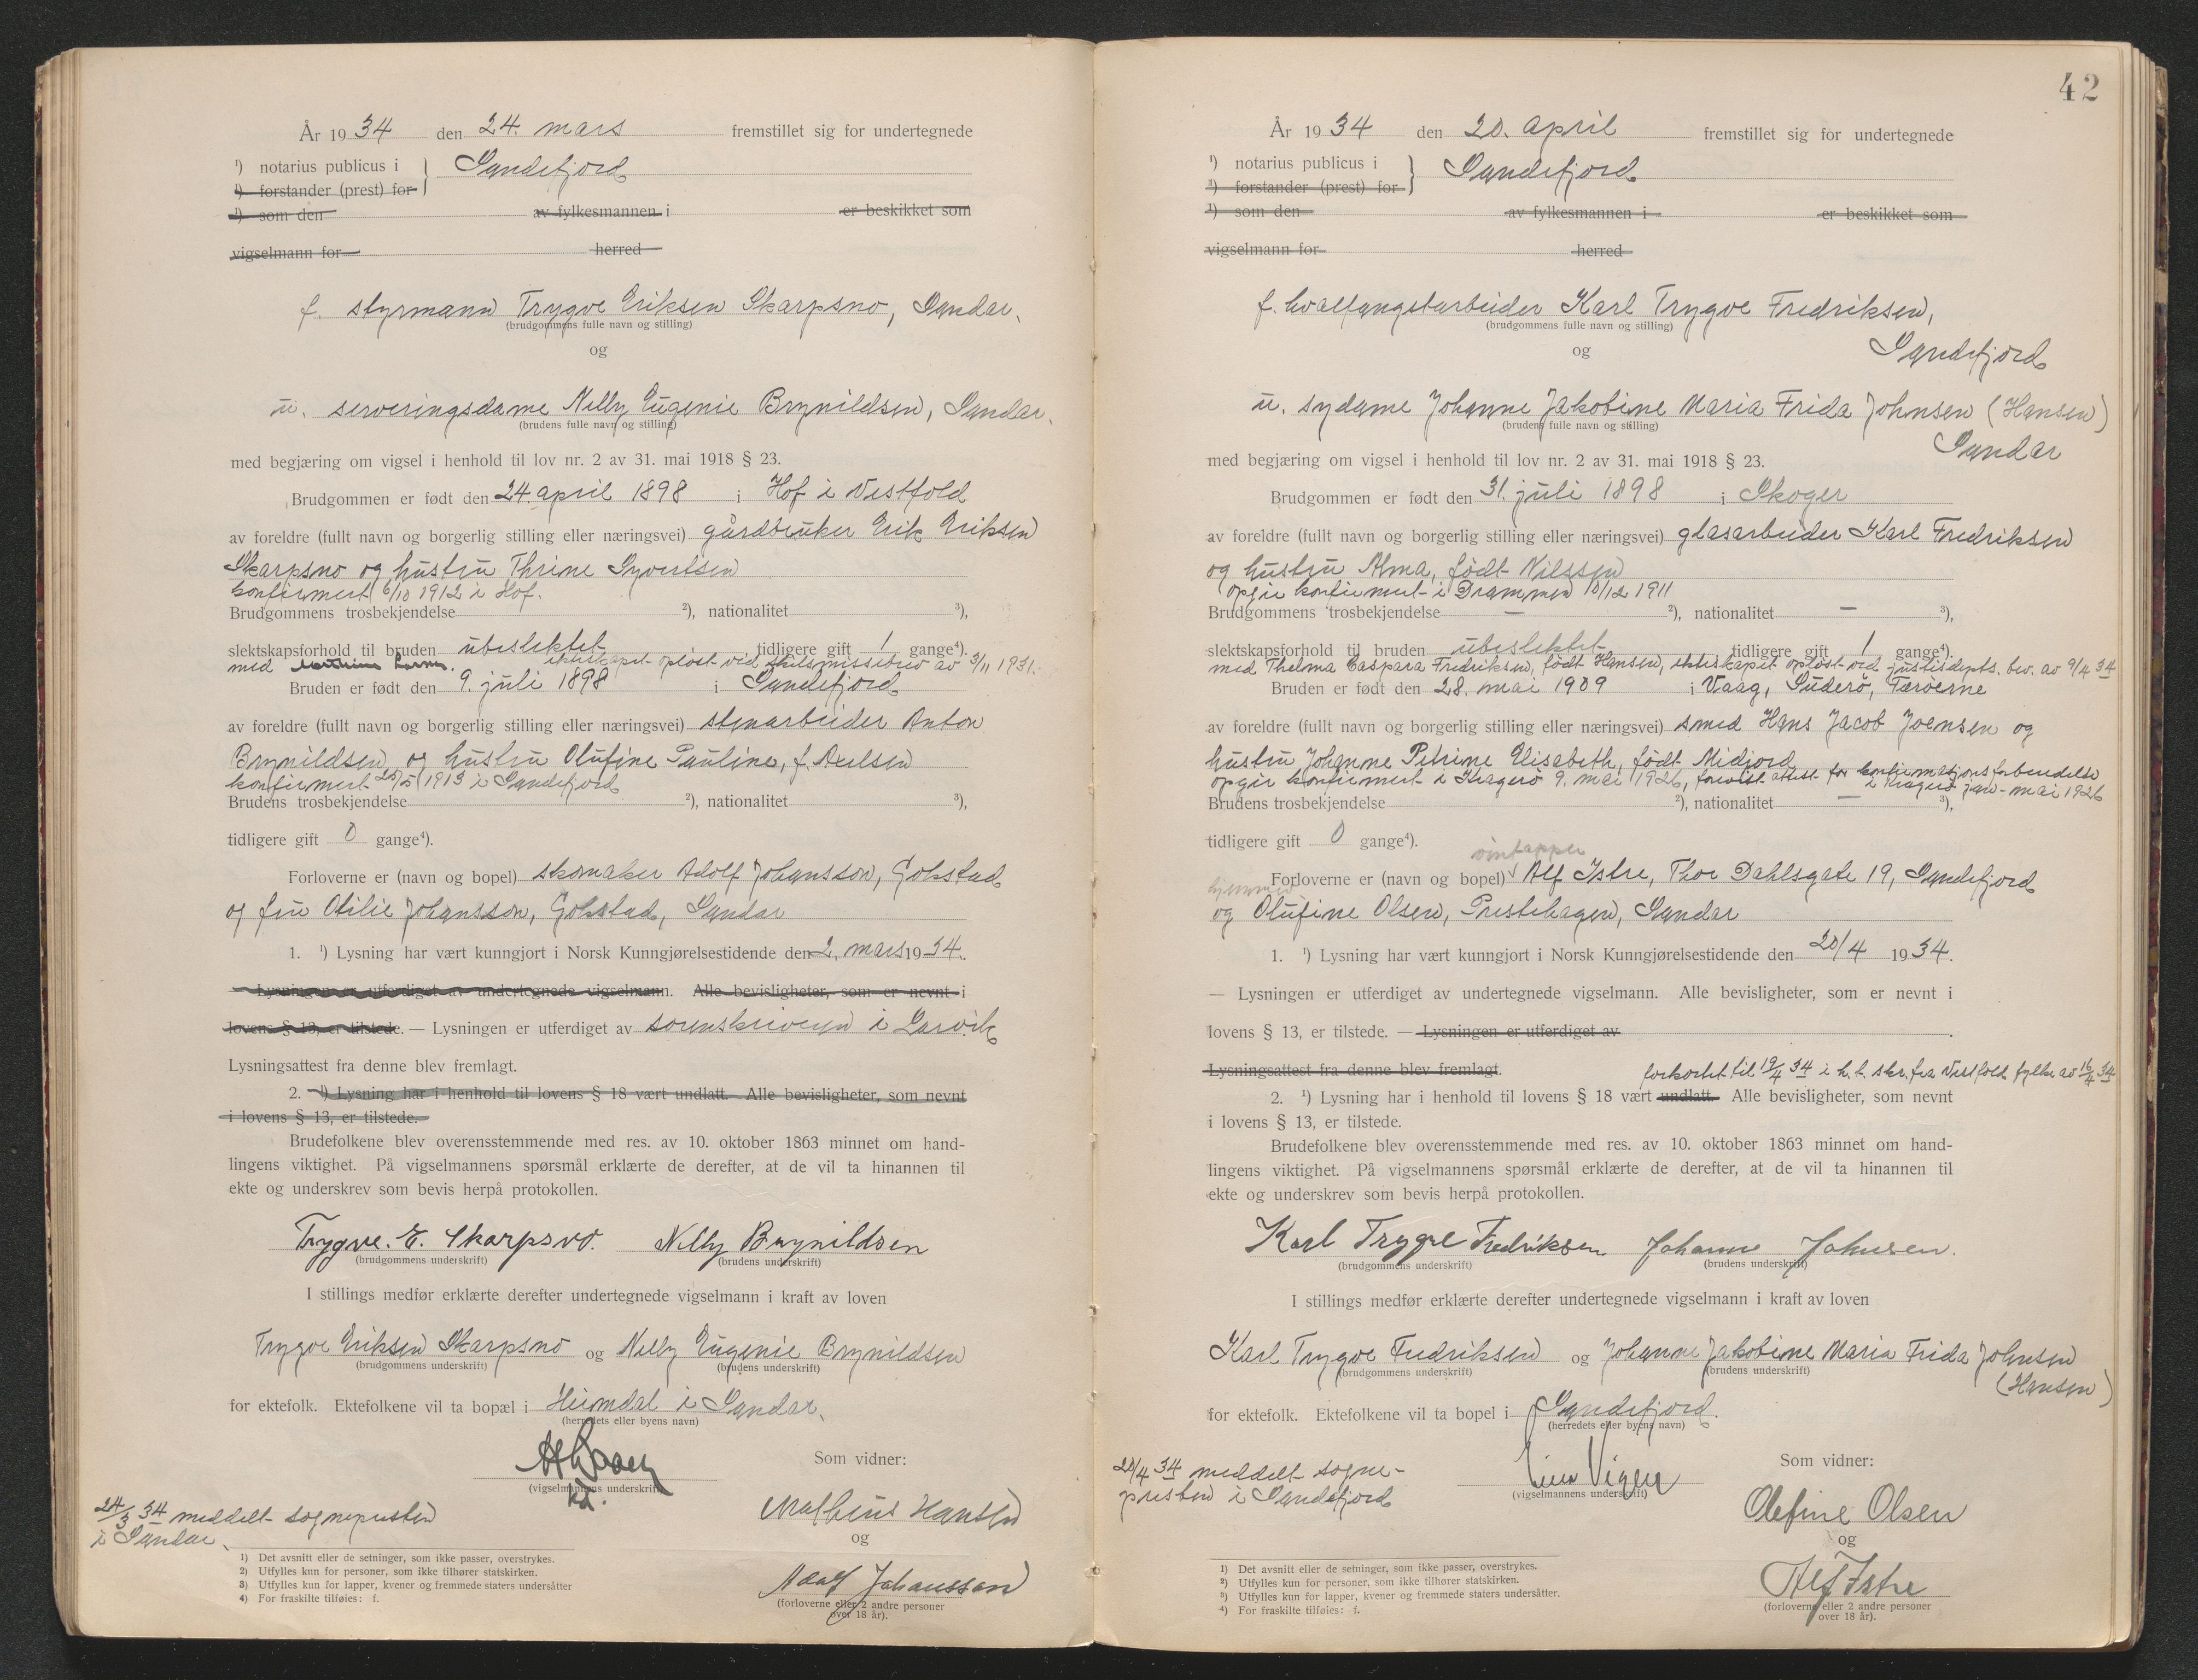 År 1934 den 24. mars fremstillet sig for undertegnede
1) notarius publicus i } Sandefjord
1) forstander (prest) for
1) som den av fylkesmannen i er beskikket som
vigselmann for herred
f. styrmann Trygve Eriksen Skarpsno, Sandar.
(brudgommens fulle navn og stilling)
og
u. serveringsdame Nelly Eugenie Brynildsen, Sandar.
(brudens fulle navn og stilling)
med begjæring om vigsel i henhold til lov nr. 2 av 31. mai 1918 § 23.
Brudgommen er født den 24. april 1898 i Hof i Vestfold
av foreldre (fullt navn og borgerlig stilling eller næringsvei) gårdbruker Erik Eriksen
Skarpsno og hustru Thrine Syvertsen
konfirmert 6/10 1912 i Hof.
Brudgommens trosbekjendelse 2), nationalitet 3),
slektskapsforhold til bruden ubeslektet tidligere gift 1 gange4).
med ekteskapet opløst ved skilsmissebev av 3/11 1931.
Bruden er født den 9. juli 1898 i Sandefjord
av foreldre (fullt navn og borgerlig stilling eller næringsvei) stenarbeider Anton
Brynildsen og hustru Olufine Pauline, f. Axelsen
konfirmert 25/5 1913 i Sandefjord
Brudens trosbekjendelse 2), nationalitet 3),
tidligere gift 0 gange4).
Forloverne er (navn og bopel) skomaker Adolf Johansson, Gokstad
og fru Otilie Johansson, Gokstad, Sandar
1. 1) Lysning har vært kunngjort i Norsk Kunngjørelsestidende den 2. mars 1934.
— Lysningen er utferdiget av undertegnede vigselmann. Alle bevisligheter, som er nevnt i
lovens § 13, er tilstede. — Lysningen er utferdiget av sorenskriveren i Larvik
Lysningsattest fra denne blev fremlagt.
2. 1) Lysning har i henhold til lovens § 18 vært undlatt. Alle bevisligheter, som nevnt
i lovens § 13, er tilstede.
Brudefolkene blev overensstemmende med res. av 10. oktober 1863 minnet om hand-
lingens viktighet. På vigselmannens spørsmål erklærte de derefter, at de vil ta hinannen til
ekte og underskrev som bevis herpå protokollen.
Trygve. E. Skarpsno. Nelly Brynildsen
(brudgommens underskrift) (brudens underskrift)
I stillings medfør erklærte derefter undertegnede vigselmann i kraft av loven
Trygve Eriksen Skarpsno og Nelly Eugenie Brynildsen
(brudgommens underskrift) (brudens underskrift)
for ektefolk. Ektefolkene vil ta bopæl i Heimdal i Sandar.
(herredets eller byens navn)
Som vidner:
(vigselmannens underskrift)
24/3 34 meddelt sognepresten
i Sandar.
Matheus Hansen
og
Adolf Johansson
(forloverne eller 2 andre personer
over 18 år).
1) Det avsnitt eller de setninger, som ikke passer, overstrykes.
2) Utfylles kun for personer, som ikke tilhører statskirken.
3) Utfylles kun for lapper, kvener og fremmede staters undersåtter
4) For fraskilte tilføies: f.
42
År 1934 den 20. april fremstillet sig for undertegnede
1) notarius publicus i } Sandefjord
1) forstander (prest) for
1) som den av fylkesmannen i er beskikket som
vigselmann for herred
f. hvalfangstarbeider Karl Trygve Fredriksen,
(brudgommens fulle navn og stilling)
og Sandefjord
u. sydame Johanne Jakobine Maria Frida Johnsen (Hansen)
(brudens fulle navn og stilling)
Sandar
med begjæring om vigsel i henhold til lov nr. 2 av 31. mai 1918 § 23.
Brudgommen er født den 31. juli 1898 i Skoger
av foreldre (fullt navn og borgerlig stilling eller næringsvei) glasarbeider Karl Fredriksen
og hustru Alma, født Nilssen
opgir konfirmert i Drammen 10/12 1911
Brudgommens trosbekjendelse — 2), nationalitet — 3),
slektskapsforhold til bruden ubeslektet tidligere gift 1 gange4).
med Thelma Caspara Fredriksen, født Hansen, ekteskapet opløst ved justisdepts. bev. av 9/4 34
Bruden er født den 28. mai 1909 i Vaag, Suderö, Færöerne
av foreldre (fullt navn og borgerlig stilling eller næringsvei) smed Hans Jacob Joensen og
hustru Johanne Petrine Elisabeth, født Midjord
opgir konfirmert i Kragerö 9. mai 1926, forevist attest for konfirmasjonsforberedelse
i Kragerö jan-mai 1926
Brudens trosbekjendelse 2), nationalitet — 3),
tidligere gift 0 gange4).
vintapper
Forloverne er (navn og bopel) Alf Istre, Thor Dahlsgate 19, Sandefjord
hjemmev.
og Olufine Olsen, Prestehagen, Sandar
1. 1) Lysning har vært kunngjort i Norsk Kunngjørelsestidende den 20/4 1934.
— Lysningen er utferdiget av undertegnede vigselmann. Alle bevisligheter, som er nevnt i
lovens § 13, er tilstede. — Lysningen er utferdiget av
Lysningsattest fra denne blev fremlagt. forkortet til 19/4 34 i h. t. skr. fra Vestfold fylke av 16/4 34
2. 1) Lysning har i henhold til lovens § 18 vært undlatt. Alle bevisligheter, som nevnt
i lovens § 13, er tilstede.
Brudefolkene blev overensstemmende med res. av 10. oktober 1863 minnet om hand-
lingens viktighet. På vigselmannens spørsmål erklærte de derefter, at de vil ta hinannen til
ekte og underskrev som bevis herpå protokollen.
Karl Trygve Fredriksen Johanne Johnsen.
(brudgommens underskrift) (brudens underskrift)
I stillings medfør erklærte derefter undertegnede vigselmann i kraft av loven
Karl Trygve Fredriksen og Johanne Jakobine Maria Frida Johnsen
(brudgommens underskrift) (brudens underskrift)
(Hansen)
for ektefolk. Ektefolkene vil ta bopel i Sandefjord.
(herredets eller byens navn)
Som vidner:
(vigselmannens underskrift)
20/4 34 meddelt sogne-
presten i Sandefjord
Olefine Olsen
og
Alf Istre
(forloverne eller 2 andre personer
over 18 år).
1) Det avsnitt eller de setninger, som ikke passer, overstrykes.
2) Utfylles kun for personer, som ikke tilhører statskirken.
3) Utfylles kun for lapper, kvener og fremmede staters undersåtter.
4) For fraskilte tilføies: f.